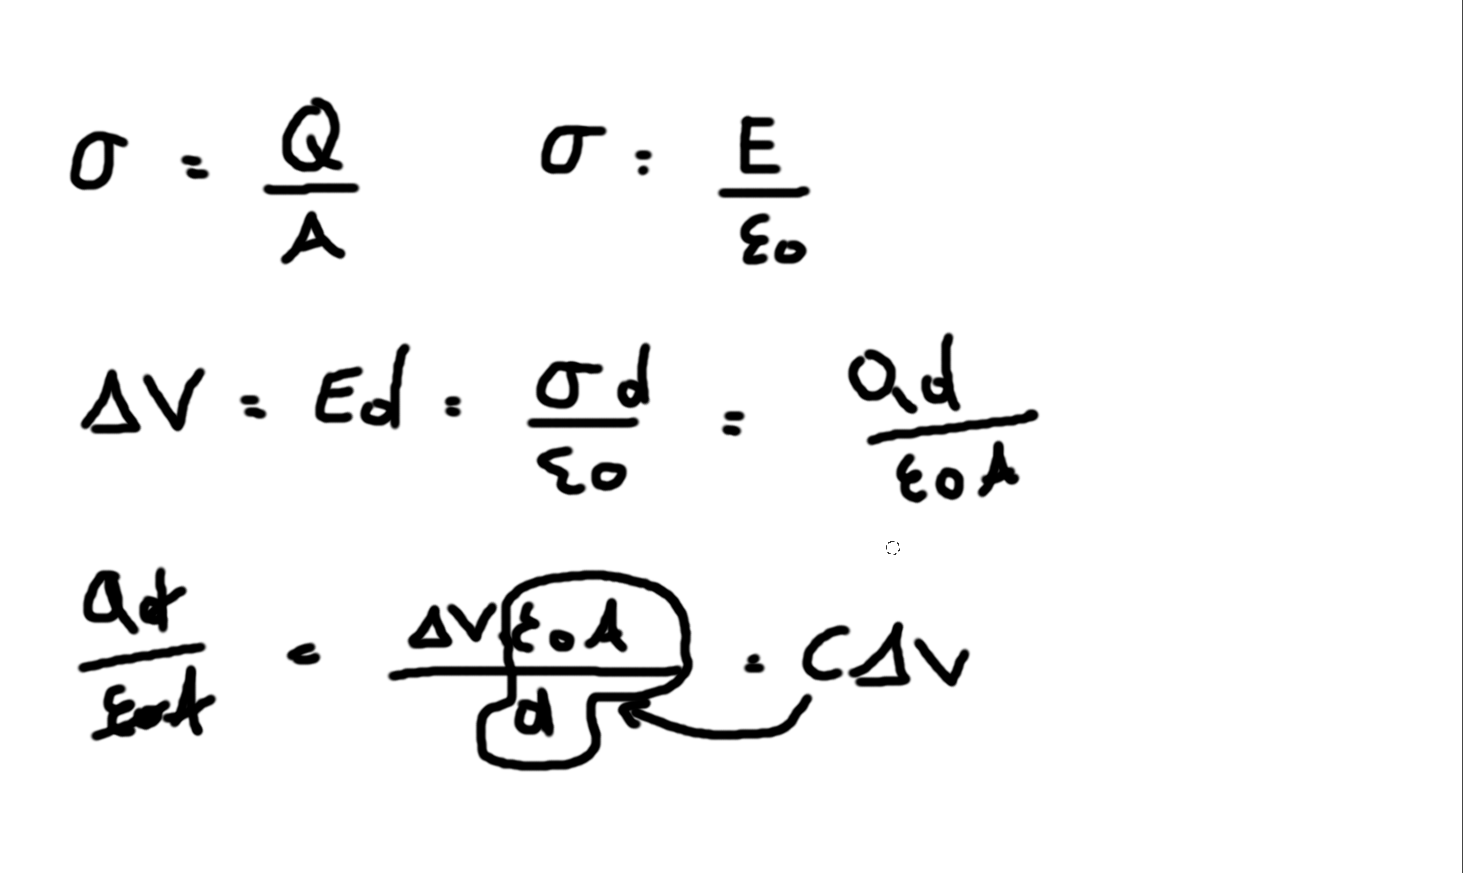 σ = Q/A σ = E/ε0
ΔV = Ed = σd/ε0 = Qd/ε0A
Qd/ε0A = ΔVε0A/d = CΔV